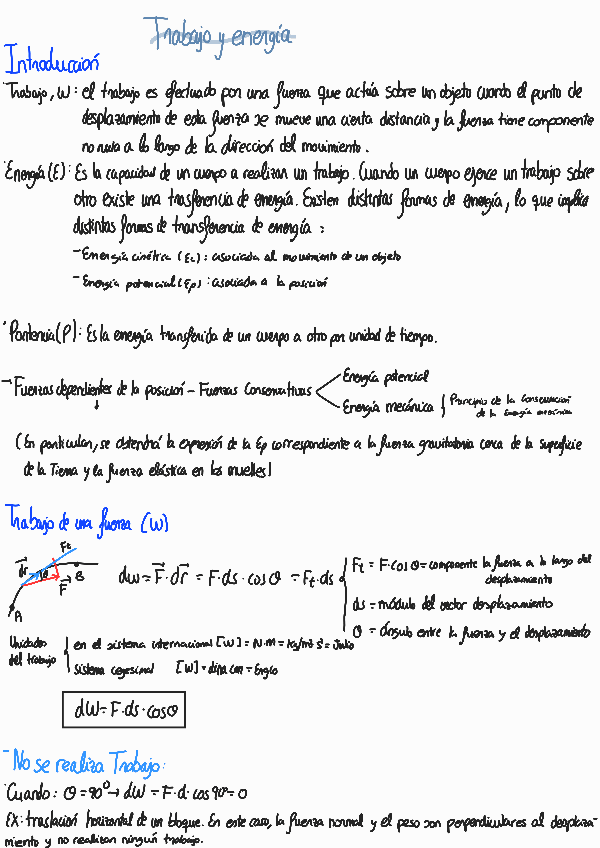 Trabajo y energía
Introducción
Trabajo, W: el trabajo es efectuado por una fuerza que actúa sobre un objeto cuando el punto de
desplazamiento de esta fuerza se mueve una cierta distancia y la fuerza tiene componente
no nula a lo largo de la dirección del movimiento.
Energía (E): Es la capacidad de un cuerpo a realizar un trabajo. Cuando un cuerpo ejerce un trabajo sobre
otro existe una trasferencia de energía. Existen distintas formas de energía, lo que implica
distintas formas de transferencia de energía:
- Energía cinética (Ec): asociada al movimiento de un objeto
- Energía potencial (Ep): asociada a la posición
Pontencia (P): Es la energía transferida de un cuerpo a otro por unidad de tiempo.
→ Fuerzas dependientes de la posición - Fuerzas Conservativas
Energía potencial
Energía mecánica { Principio de la Conservación
de la Energía mecánica
(En particular, se obtendrá la expresión de la Ep correspondiente a la fuerza gravitatoria cerca de la superficie
de la Tierra y la fuerza elástica en los muelles)
Trabajo de una fuerza (W)
Ft
dr θ B
F
A
dw = F · dr = F · ds · cos θ = Ft · ds
Ft = F · cos θ = componente la fuerza a lo largo del
desplazamiento
ds = módulo del vector desplazamiento
θ = ángulo entre la fuerza y el desplazamiento
Unidades
del trabajo
en el sistema internacional [W] = N·m = Kg/m² s² = Julio
sistema cegesimal [W] = dina cm = Ergio
dW = F · ds · cos θ
- No se realiza Trabajo:
Cuando: θ = 90° → dW = F · d · cos 90° = 0
Ex: traslación horizontal de un bloque. En este caso, la fuerza normal y el peso son perpendiculares al desplaza-
miento y no realizan ningún trabajo.